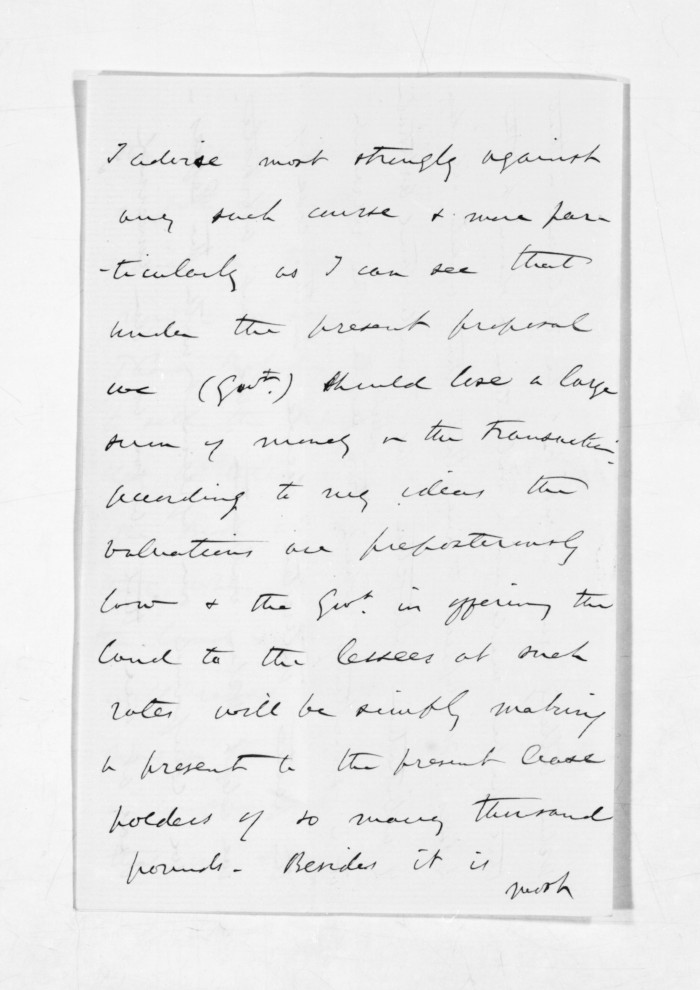 I advise most strongly against
any such course & more par-
-ticularly as I can see that
under the present proposal
we (Govt.) should lose a large
sum of money on the transaction.
According to my ideas the
valuations are preposterously
low & the Govt. in offering the
land to the lessees at such
rates will be simply making
a present to the present lease
holders of so many thousand
pounds. Besides it is
most